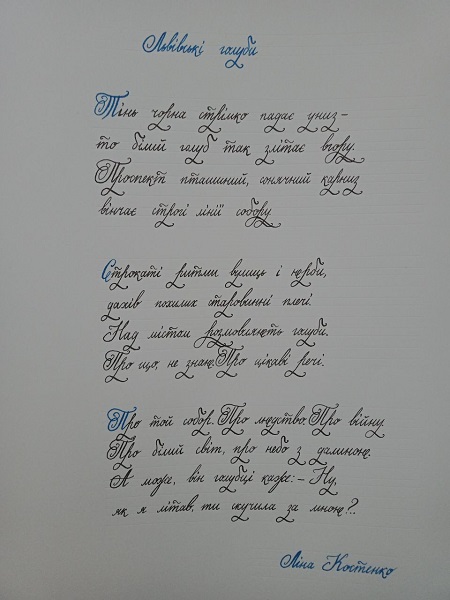 Львівські голуби
Тінь чорна стрімко падає униз –
то білий голуб так злітає вгору.
Проспект пташиний, сонячний карниз
вінчає строгі лінії собору
Строкаті ритми вулиць і юрби,
дахів похилих старовинні плечі.
Над містом розмовляють голуби.
Про що, не знаю. Про цікаві речі.
Про той собор. Про людство. Про війну.
Про білий світ, про небо з далиною.
А може, він голубці каже: – Ну,
як я літав, ти скучила за мною?..
Ліна Костенко